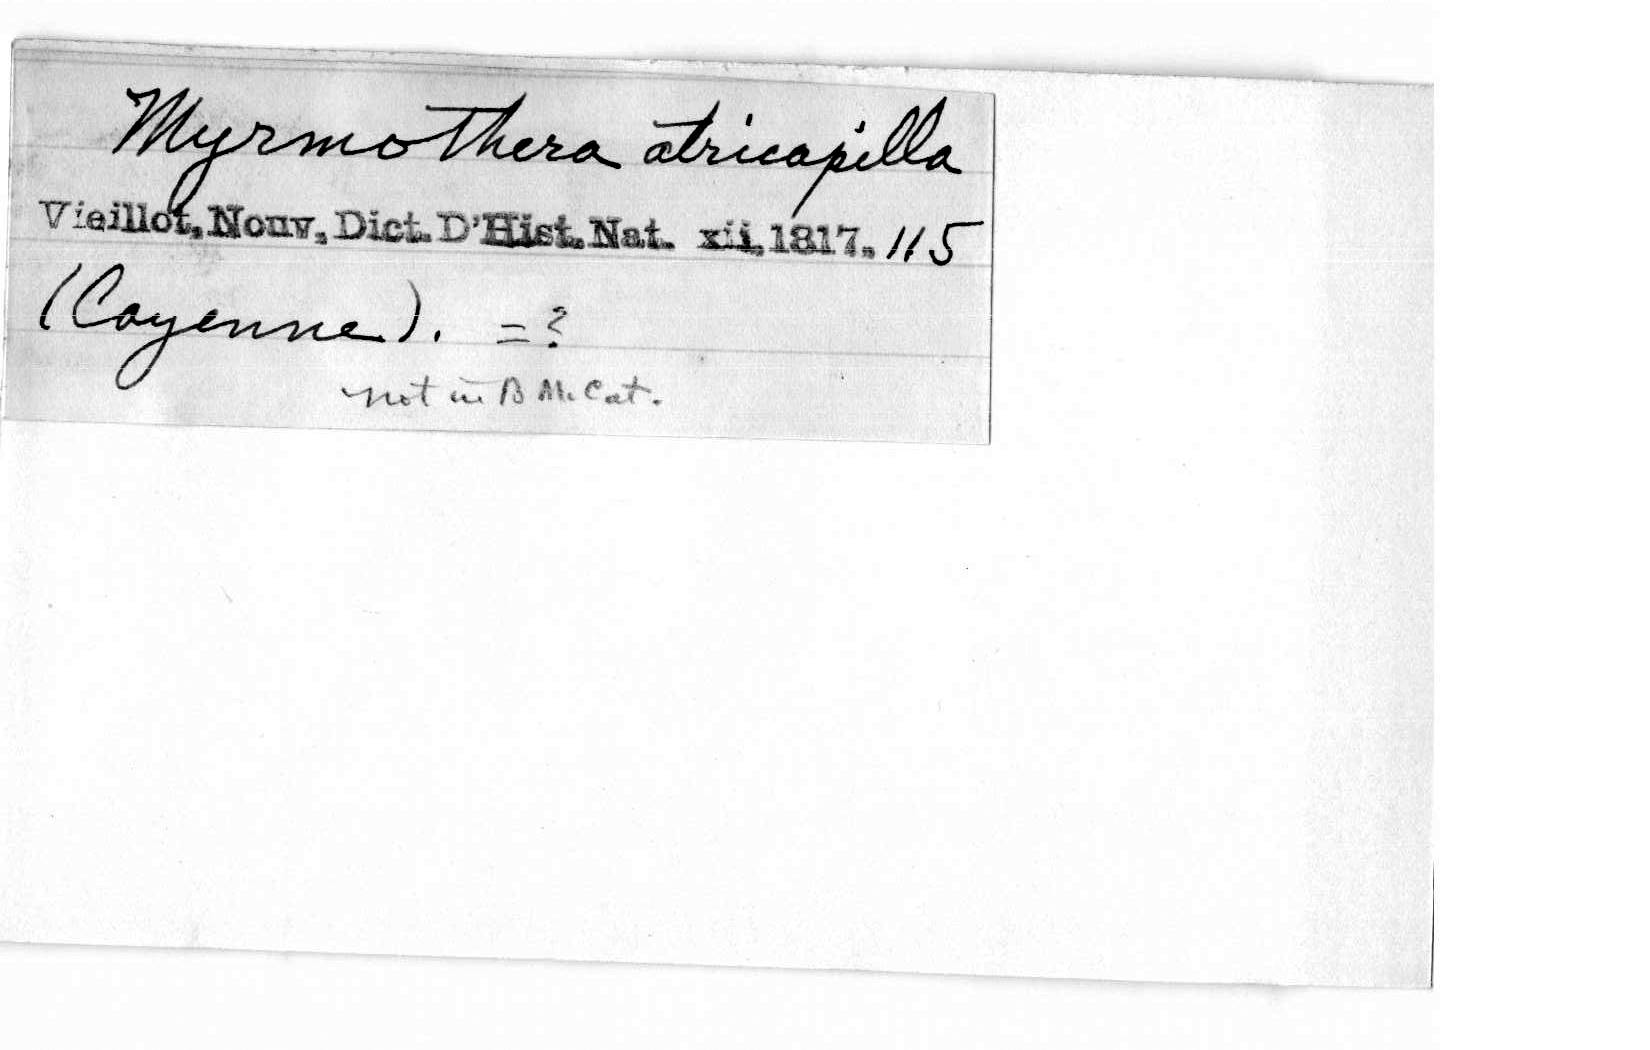 Myrmothera atricapilla
Vieillot, Nouv. Dict. D'Hist. Nat. xii, 1817, 115
(Cayenne). =?
not in B M. Cat.